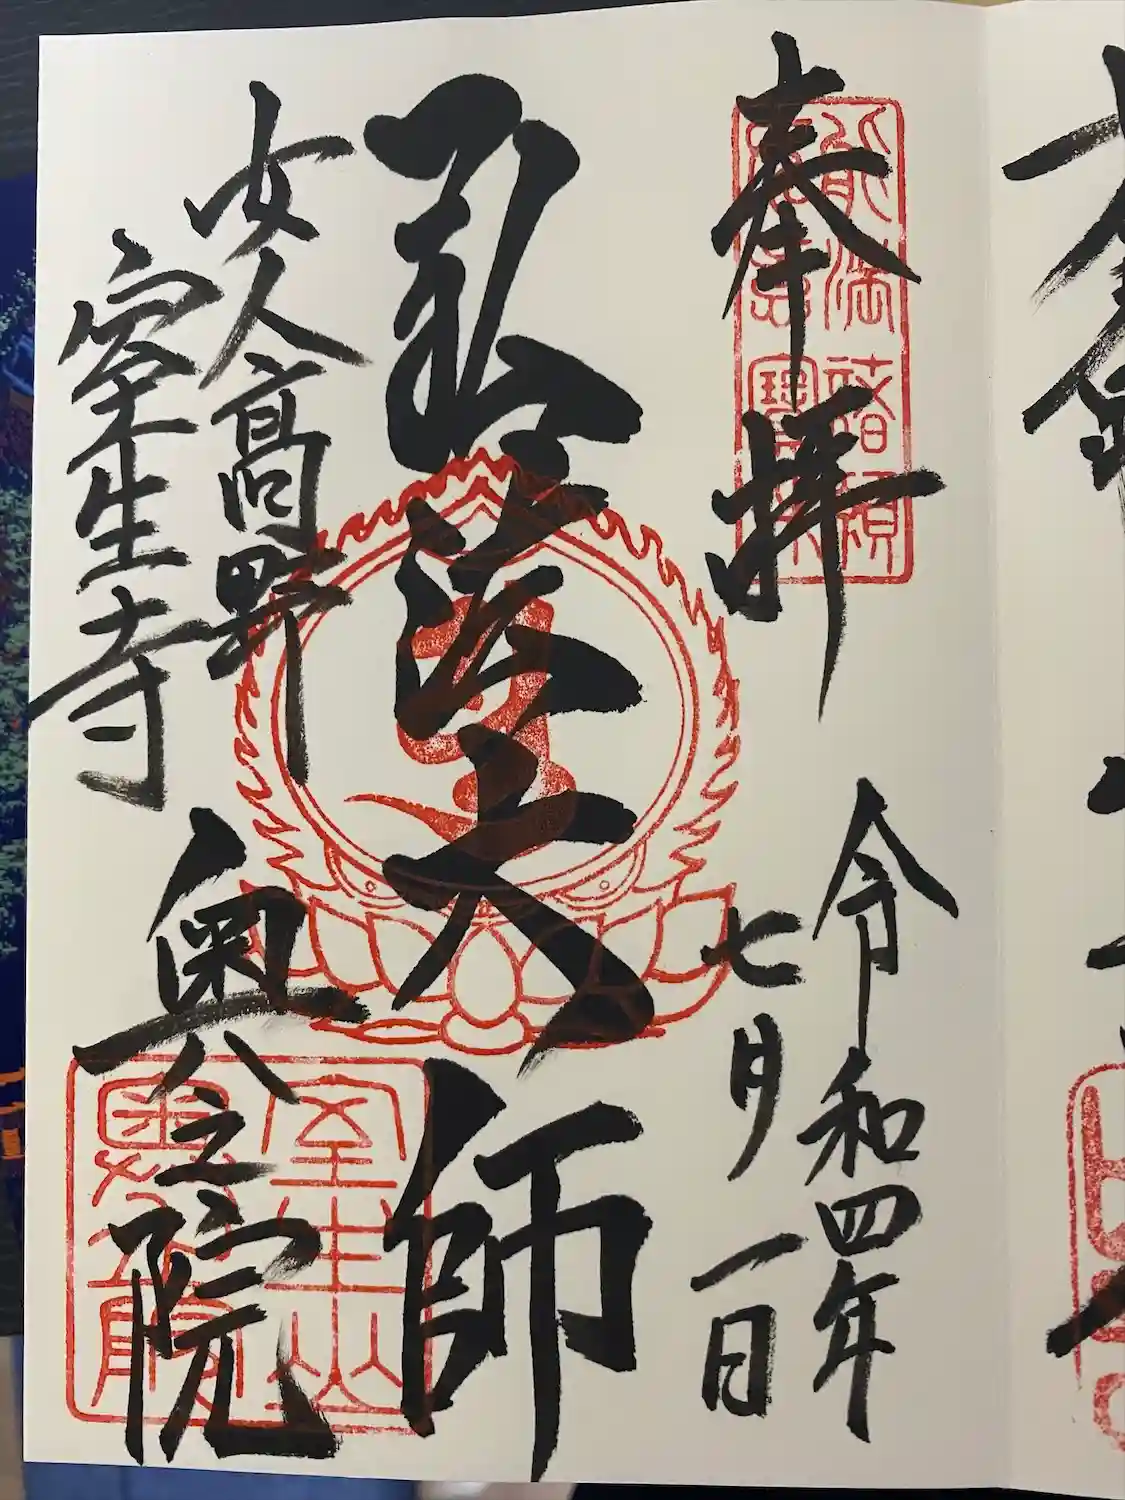 奉拝
令和四年
七月一日
弘法大師
女人高野
室生寺
奥之院
能満諸願
室生山